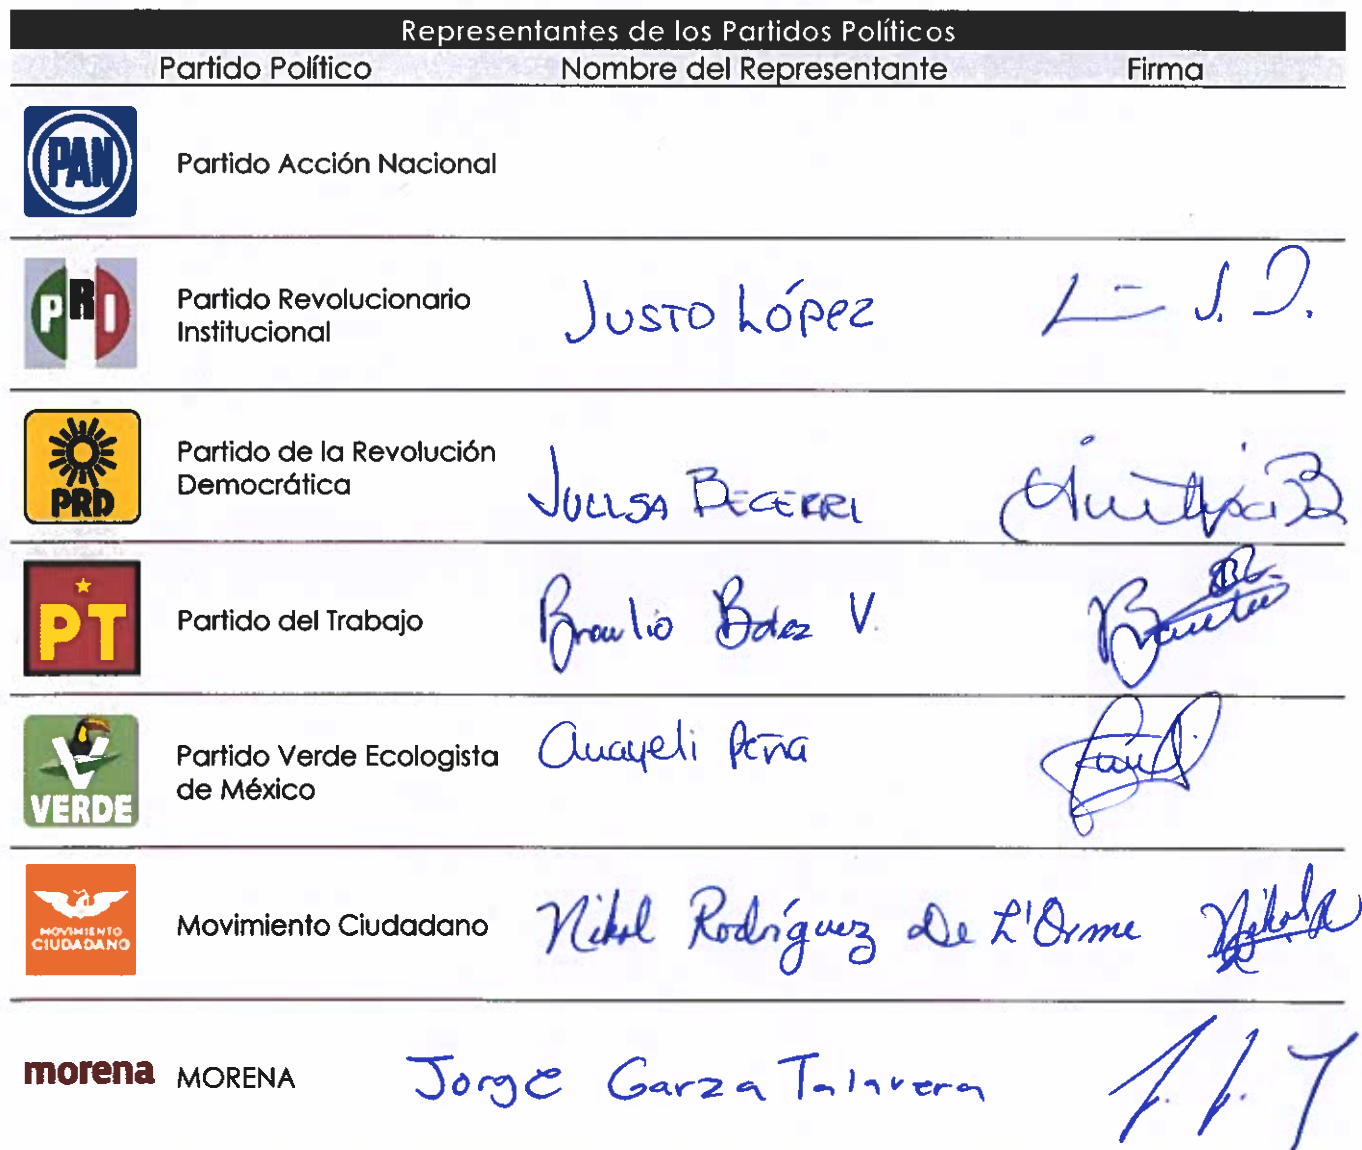 Representantes de los Partidos Políticos
Partido Político Nombre del Representante Firma
PAN Partido Acción Nacional
PRI Partido Revolucionario
Institucional
Justo López
PRD Partido de la Revolución
Democrática
Becerri
PT Partido del Trabajo
Braulio Baez V.
VERDE Partido Verde Ecologista
de México
Anayeli Peña
MOVIMIENTO
CIUDADANO
Movimiento Ciudadano
Nikol Rodríguez De L'Orme
morena MORENA
Jorge Garza Talavera